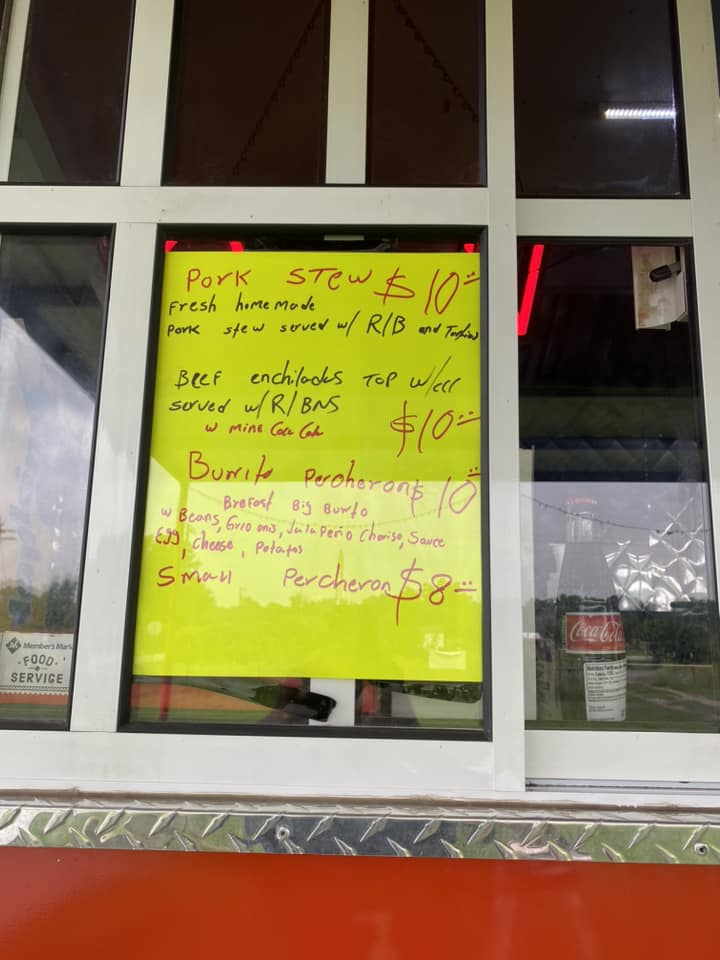 Pork STEW $10=
Fresh homemade
Pork stew served w/ R/B and
BEEF enchiladas TOP w/
served w/R/BNS
w mine Coca Cola
$10=
Burrito Percheron $10=
Big Burrito
w Beans, Gril onis, Jalapeño Choriso, Sauce
Egg, Cheese, Potatos
Small Percheron $8=
Member's Mark
FOOD
SERVICE
Coca-Cola